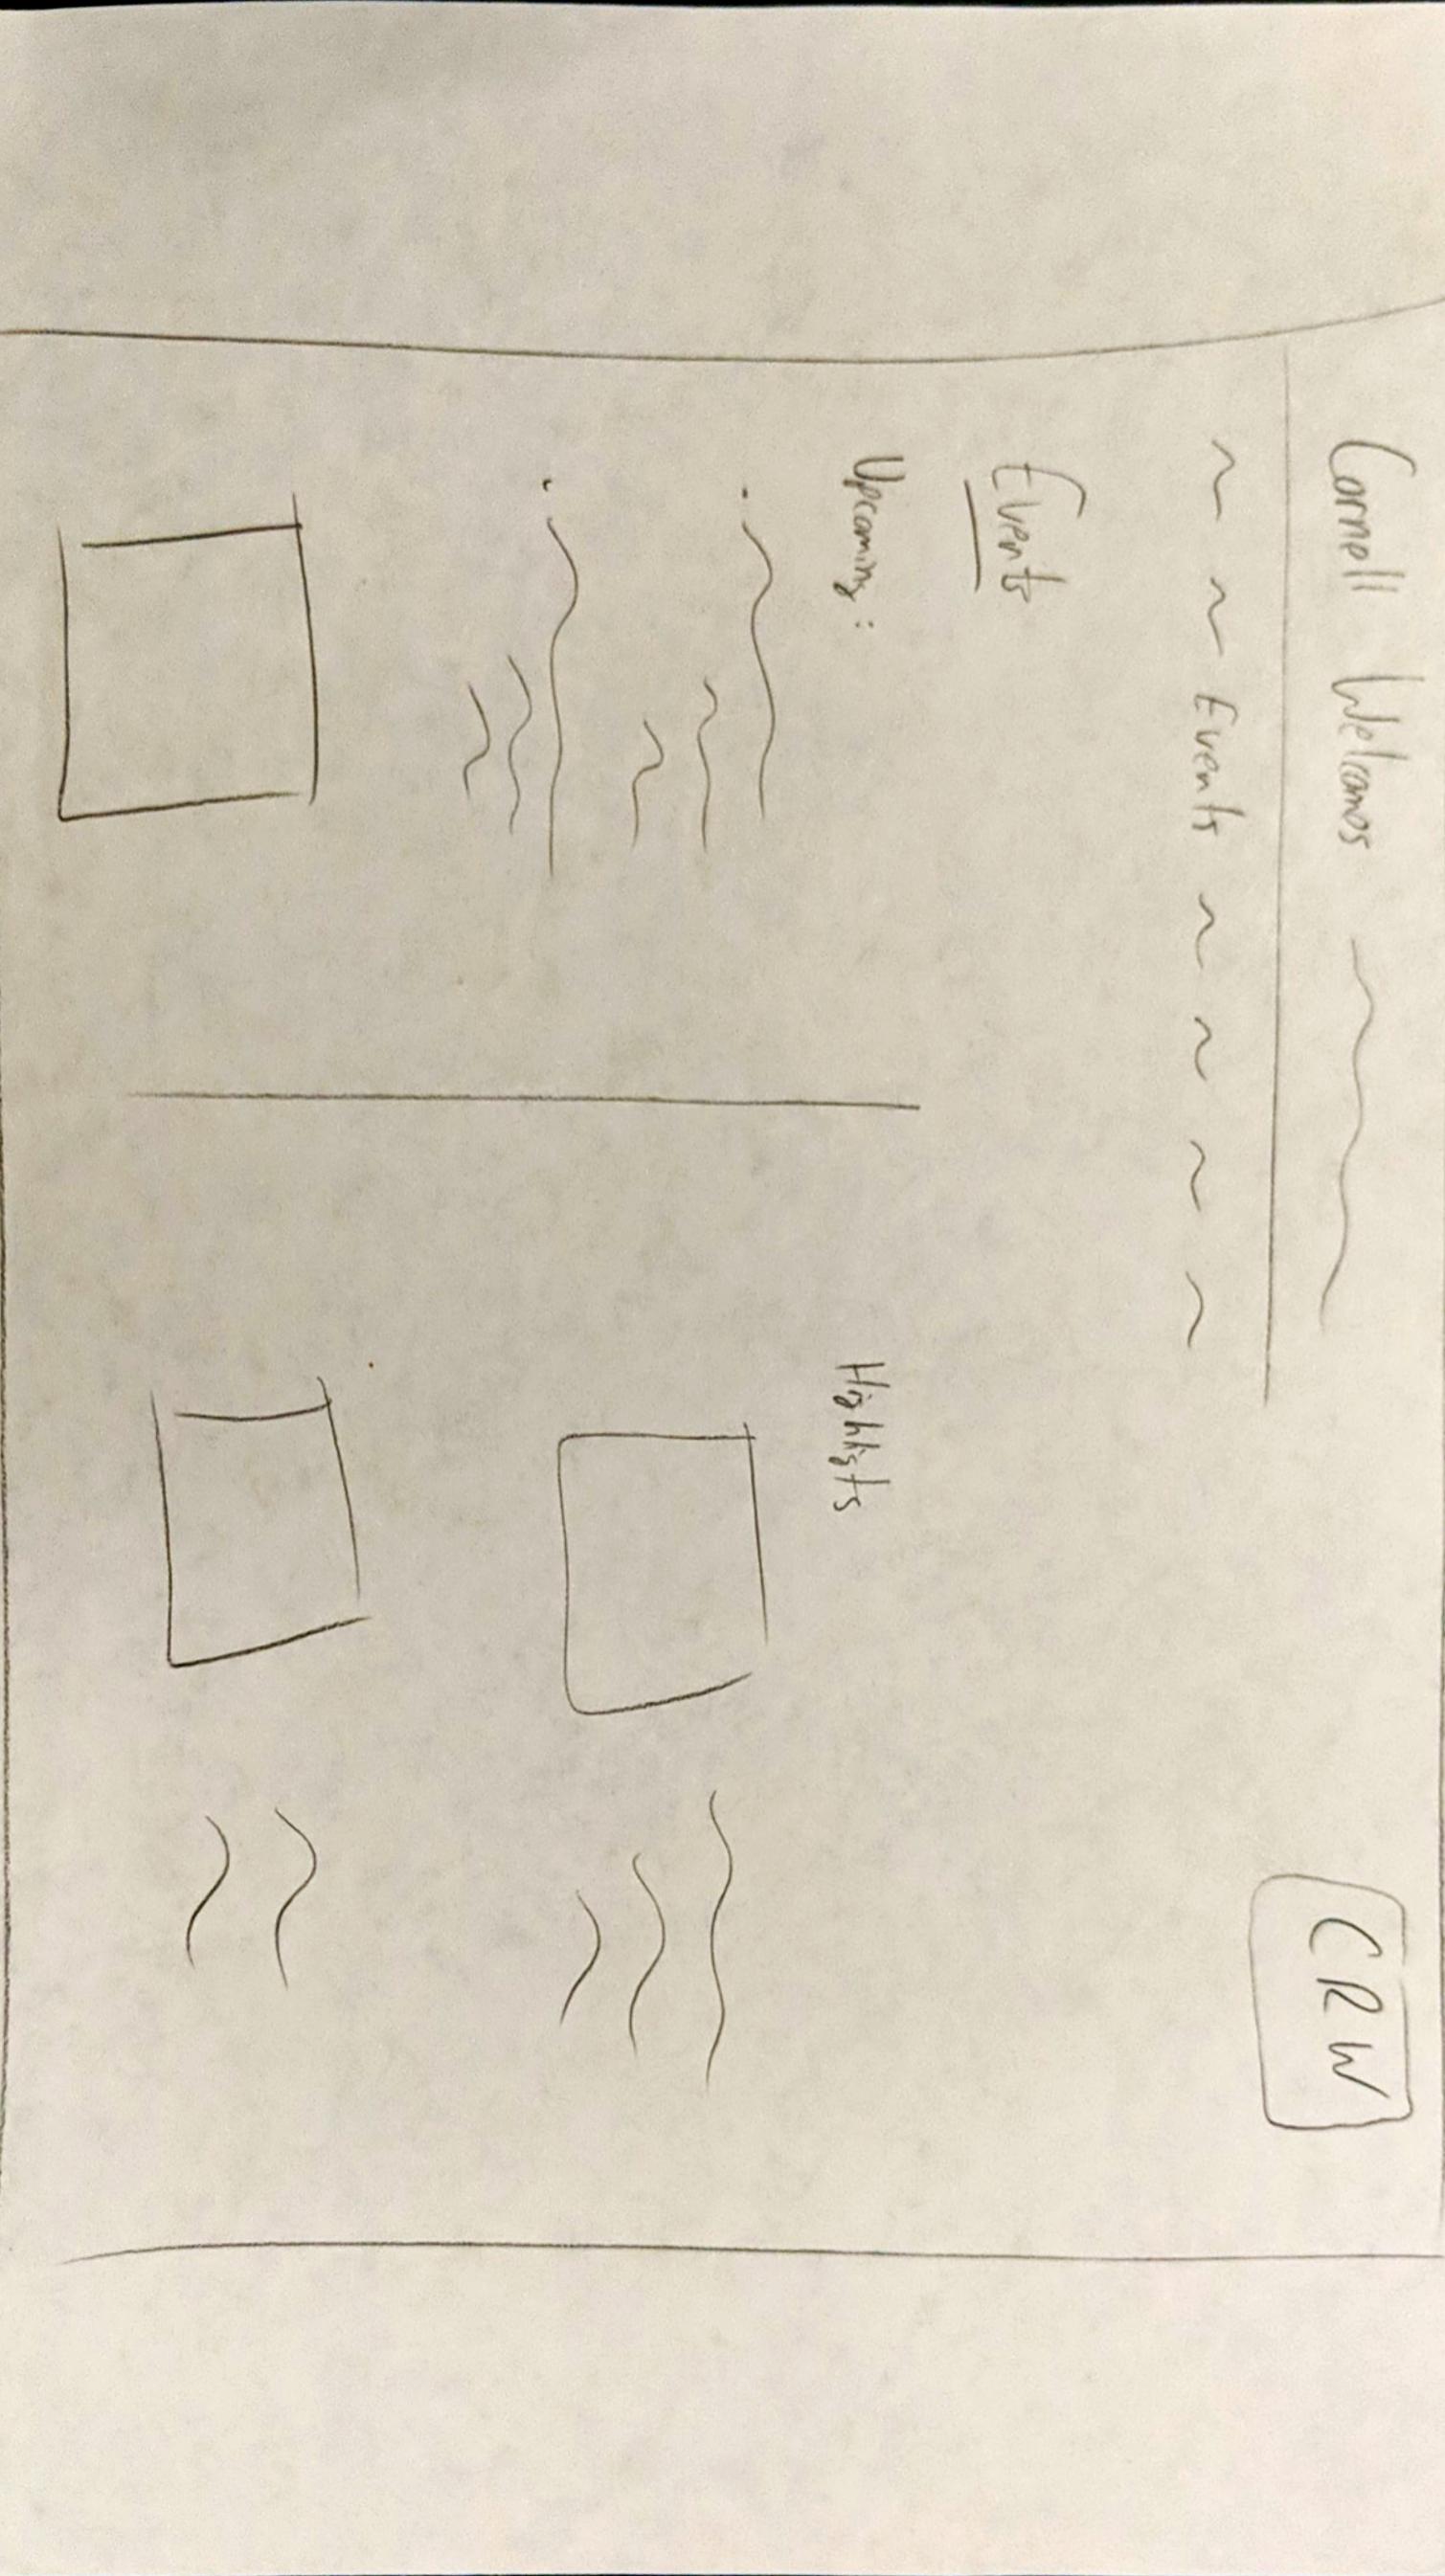 Cornell Welcomes
CRW
Events
Events
Upcoming:
Highligts